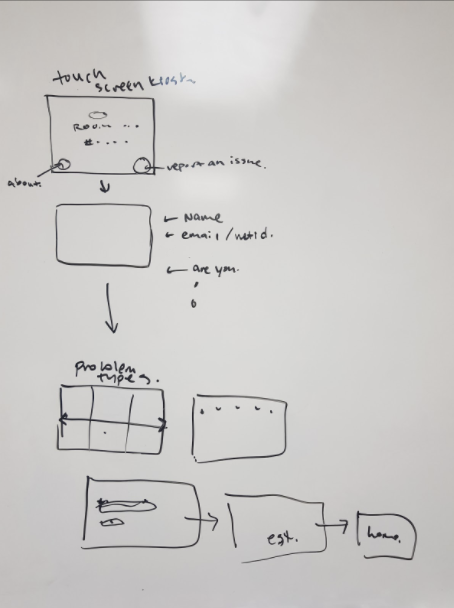 touch
screen kiosk
Room ...
#....
about.
report an issue.
Name
email/netid.
are you.
problem
types.
est.
home.